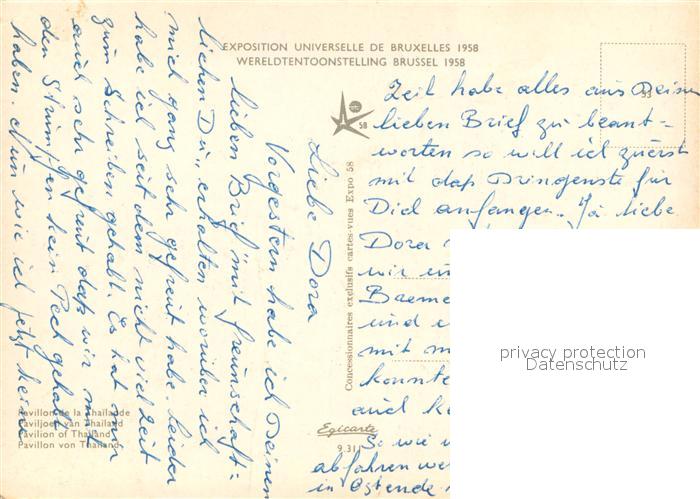 EXPOSITION UNIVERSELLE DE BRUXELLES 1958
WERELDTENTOONSTELLING BRUSSEL 1958
58
Liebe Dora
Vorgestern habe ich Deinen
lieben Brief mit freunschaft=
lichen Du", erhalten worüber ich
mich ganz sehr gefreut habe. Leider
habe ich seit dem nicht viel Zeit
zum Schreiben gehabt. Es hat mir
auch sehr gefreut daß wir mit
den Strümpfen kein Pech gehabt
haben. Nun wie ich jetzt keine
Zeit habe alles aus Deinem
lieben Brief zu beant=
worten so will ich zuerst
mit daß Dringenste für
Dich anfangen. Ja liebe
Dora
wir
Breme
und
mit
konnte
auch
So wie
abfahren
in Ostende
Concessionnaires exclusifs cartes-vues Expo 58
Pavillon de la Thaïlande
Paviljoen van Thailand
Pavilion of Thailand
Pavillon von Thailand
Egicarte
9.31
privacy protection
Datenschutz